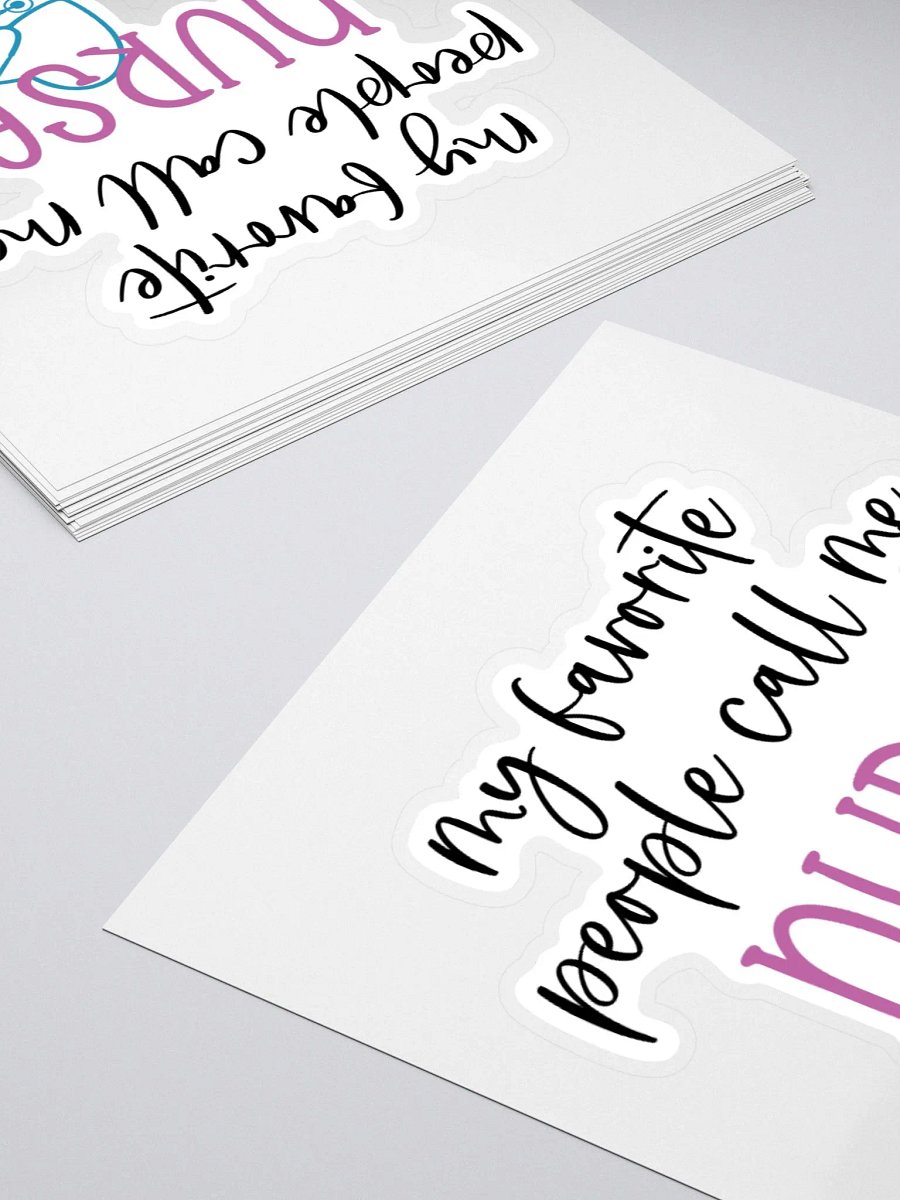 my favorite
people call me
my favorite
people call me